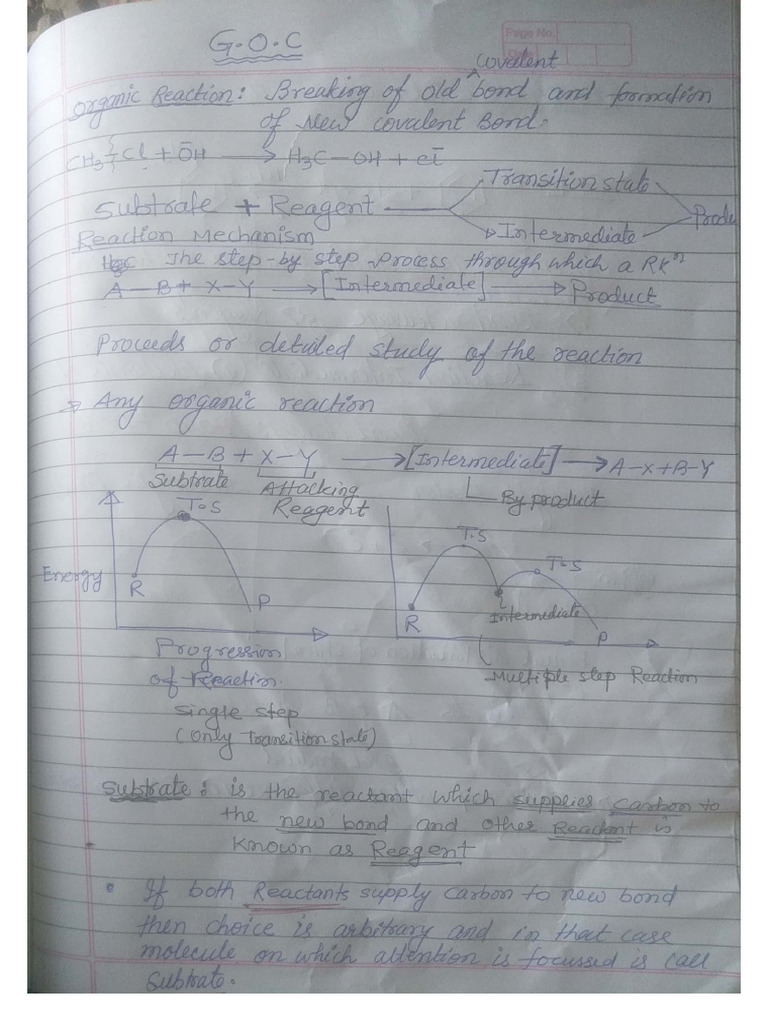 G.O.C
Page No.
Date
Organic Reaction: Breaking of old covalent bond and formation
of New covalent Bond.
CH3-Cl + ŌH → H3C-OH + cl̄
Transition state
Subtrate + Reagent Produ
Intermediate
Reaction Mechanism
The step-by step process through which a RXⁿ
A-B + X-Y → [Intermediate] → Product
Proceeds or detailed study of the reaction
→ Any organic reaction
A-B + X-Y → [Intermediate] → A-X+B-Y
Subtrate Attacking Reagent By product
T.S
Energy
R
P
Progression
of reaction.
single step
(only Transition state)
T.S
T.S
R
Intermediate
P
Multiple step Reaction
Substrate: is the reactant which supplies carbon to
the new bond and other Reactant is
known as Reagent
• If both Reactants supply carbon to new bond
then choice is arbitrary and in that case
molecule on which attention is focussed is call
Subtrate.